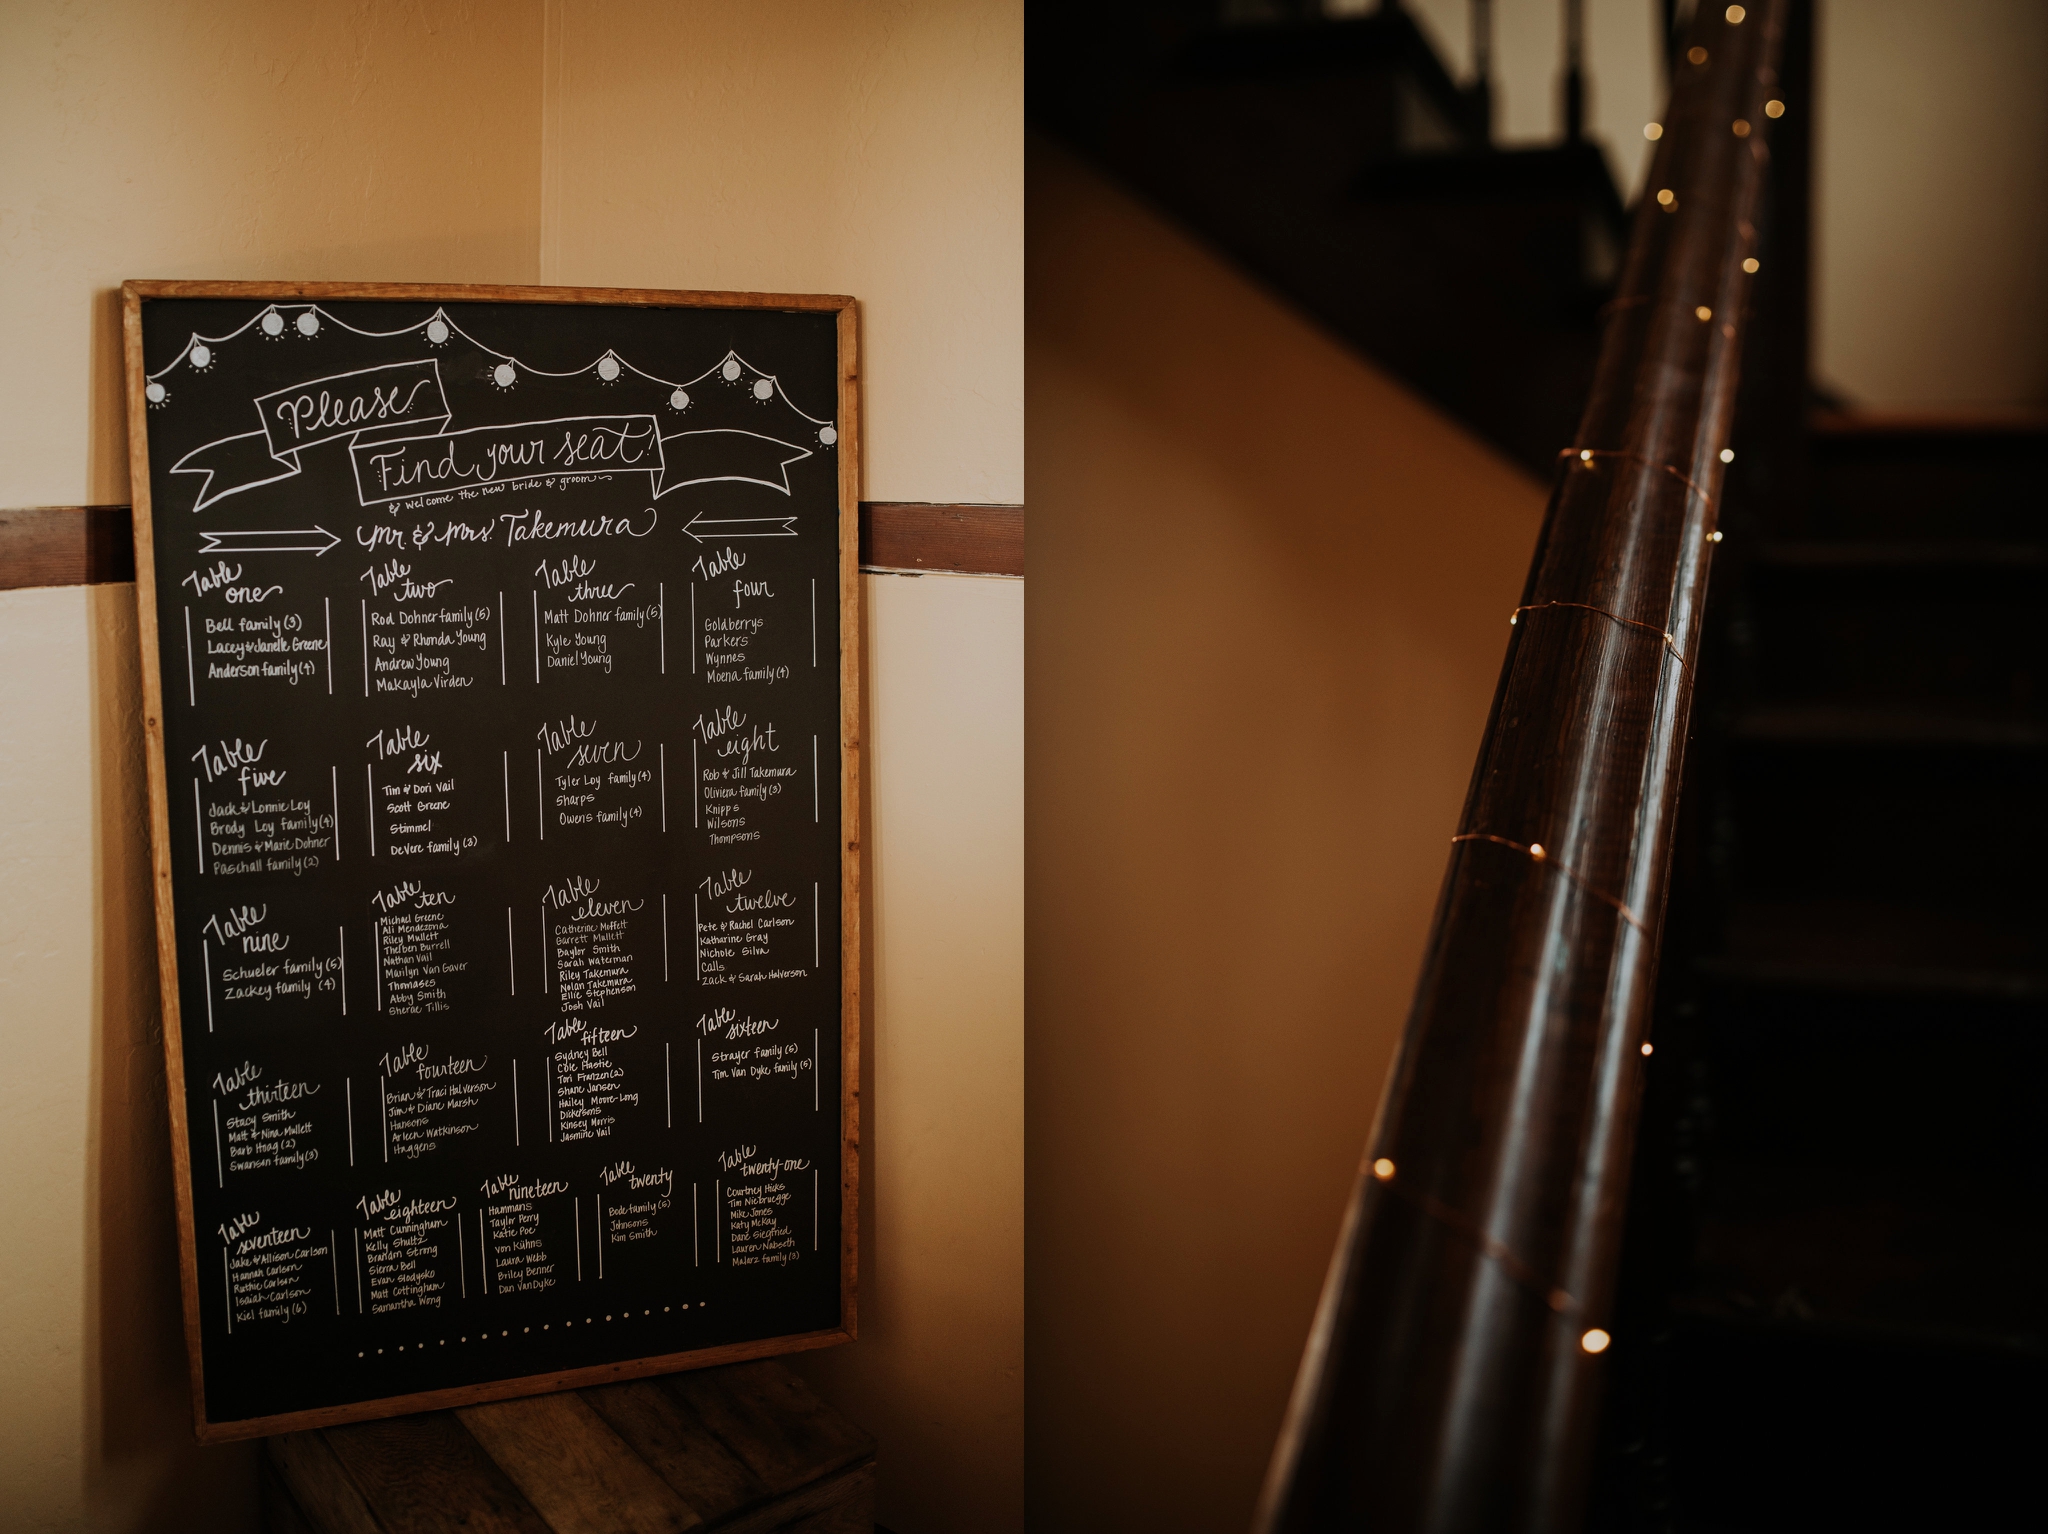 Please
Find your seat!
& welcome the new bride & groom
Mr. & Mrs. Takemura
Table one
Bell family (3)
Lacey & Janelle Greene
Anderson family (4)
Table two
Rod Dohner family (5)
Ray & Rhonda Young
Andrew Young
Makayla Virden
Table three
Matt Dohner family (5)
Kyle Young
Daniel Young
Table four
Goldberrys
Parkers
Wynnes
Moena family (4)
Table five
Jack & Lonnie Loy
Brody Loy family (4)
Dennis & Marie Dohner
Paschall family (2)
Table six
Tim & Dori Vail
Scott Greene
Stimmel
DeVere family (3)
Table seven
Tyler Loy family (4)
Sharps
Owens family (4)
Table eight
Rob & Jill Takemura
Oliviera family (3)
Knipps
Wilsons
Thompsons
Table nine
Schueler family (5)
Zackey family (4)
Table ten
Michael Greene
Ali Mendezona
Riley Mullett
Theiben Burrell
Nathan Vail
Marilyn Van Gaver
Thomases
Abby Smith
Sherae Tillis
Table eleven
Catherine Moffett
Garrett Mullett
Baylor Smith
Sarah Waterman
Riley Takemura
Nolan Takemura
Ellie Stephenson
Josh Vail
Table twelve
Pete & Rachel Carlson
Katharine Gray
Nichole Silva
Calls
Zack & Sarah Halverson
Table thirteen
Stacy Smith
Matt & Nina Mullett
Barb Hoag (2)
Swanson family (3)
Table fourteen
Brian & Traci Halverson
Jim & Diane Marsh
Hansons
Arleen Watkinson
Huggens
Table fifteen
Sydney Bell
Cole Hastie
Tori Franzen (2)
Shane Jansen
Hailey Moore-Long
Dickersons
Kinsey Morris
Jasmine Vail
Table sixteen
Strayer family (5)
Tim Van Dyke family (5)
Table seventeen
Jake & Allison Carlson
Hannah Carlson
Ruthie Carlson
Isaiah Carlson
Kiel family (6)
Table eighteen
Matt Cunningham
Kelly Shultz
Brandon Strong
Sierra Bell
Evan Slodysko
Matt Cottingham
Samantha Wong
Table nineteen
Hammans
Taylor Perry
Katie Poe
von Kühns
Laura Webb
Briley Benner
Dan VanDyke
Table twenty
Bode family (5)
Johnsons
Kim Smith
Table twenty-one
Courtney Hicks
Tim Niebruegge
Mike Jones
Katy McKay
Dane Siegfried
Lauren Nabseth
Malarz family (3)